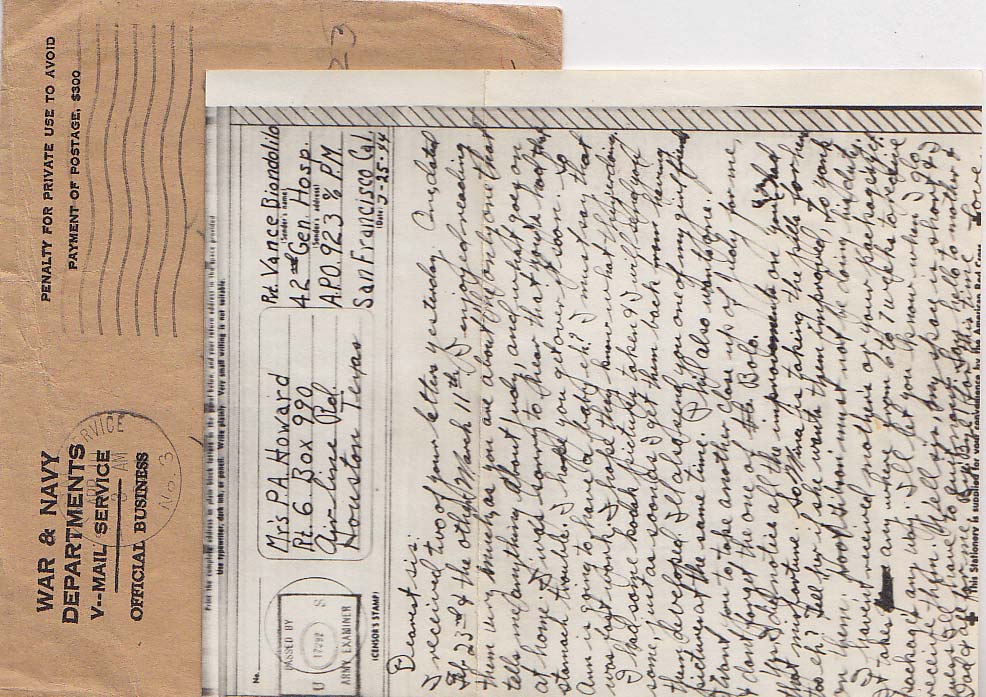 WAR & NAVY
DEPARTMENTS
V--MAIL SERVICE
OFFICIAL BUSINESS
PENALTY FOR PRIVATE USE TO AVOID
PAYMENT OF POSTAGE, $300
No. 3
Print the complete address in plain block letters in the panel below, and your return address in the space provided
Use typewriter, dark ink, or pencil. Write plainly. Very small writing is not suitable.
No.
PASSED BY
U S
ARMY EXAMINER
(CENSOR'S STAMP)
Mrs P.A. Howard
Rt. 6 Box 990
Air-line Rd.
Houston Texas
Pvt. Vance Biondolilo
(Sender's name)
42nd Gen. Hosp.
(Sender's address)
A.P.O. 923 % P.M.
San Francisco Cal.
(Date)
Dearest sis:
I received two of your letters yesterday. One dated
Feb 23rd & the other March 11th. I enjoy reading
them very much, as you are about the only one that
tells me anything about Judy and what goes on
at home. I was sorry to hear that you've had that
stomach trouble. I hope you get over it soon. So
Ann is going to have a baby eh? I must say that
was fast work. I hope they know what they're doing.
I had some more pictures taken & I will send you
some, just as soon as I get them back from having
them developed. I'll also send you one of my girl friend
pictures at the same time. Phil also wants one.
I want you to take another close up of Judy for me,
& don't forget the one of the Bolo.
that misfortune so Alma is taking the pills for her
too eh? Tell her if she wants them improved to work
on them.
I haven't received mother's or your package yet.
It takes any where from 6 to 7 weeks to receive
packages any day. I'll let you know when I
receive them. Well sis my space is short & I
guess I'll have to quit now. Say hello to mother &
dad & all for me. Be writing for this time
Love
This Stationery is supplied for your convenience by the American Red Cross